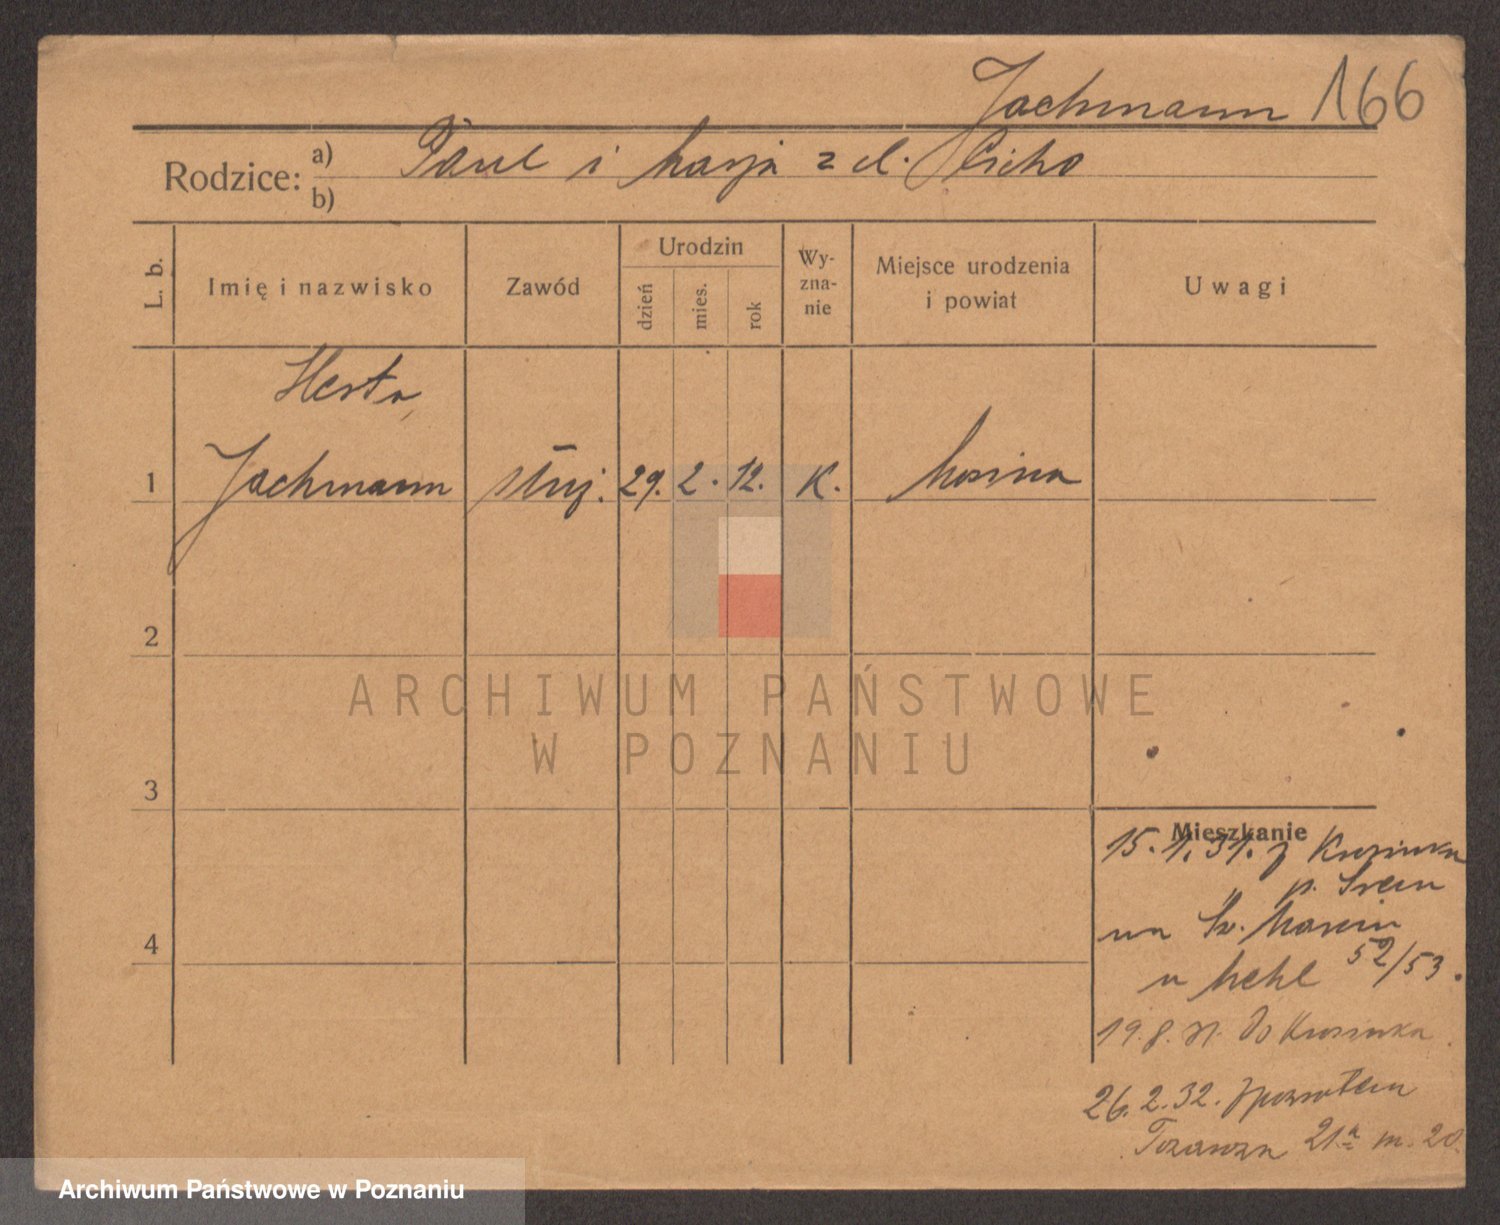 Jachmann 166
Rodzice: a) Paul i Marja z d. Cicho
b)
L. b.
Imię i nazwisko
Zawód
Urodzin
dzień
mies.
rok
Wy-
zna-
nie
Miejsce urodzenia
i powiat
Uwagi
Herta
1 Jachmann służ. 29. 2. 12. K. Mosina
2
ARCHIWUM PAŃSTWOWE
W POZNANIU
3
Mieszkanie
15.1.31. z
p. Śrem
na Św. Marcin
52/53.
u
4
19.8.31. do
26.2.32. z powrotem
21a m. 20.
Archiwum Państwowe w Poznaniu